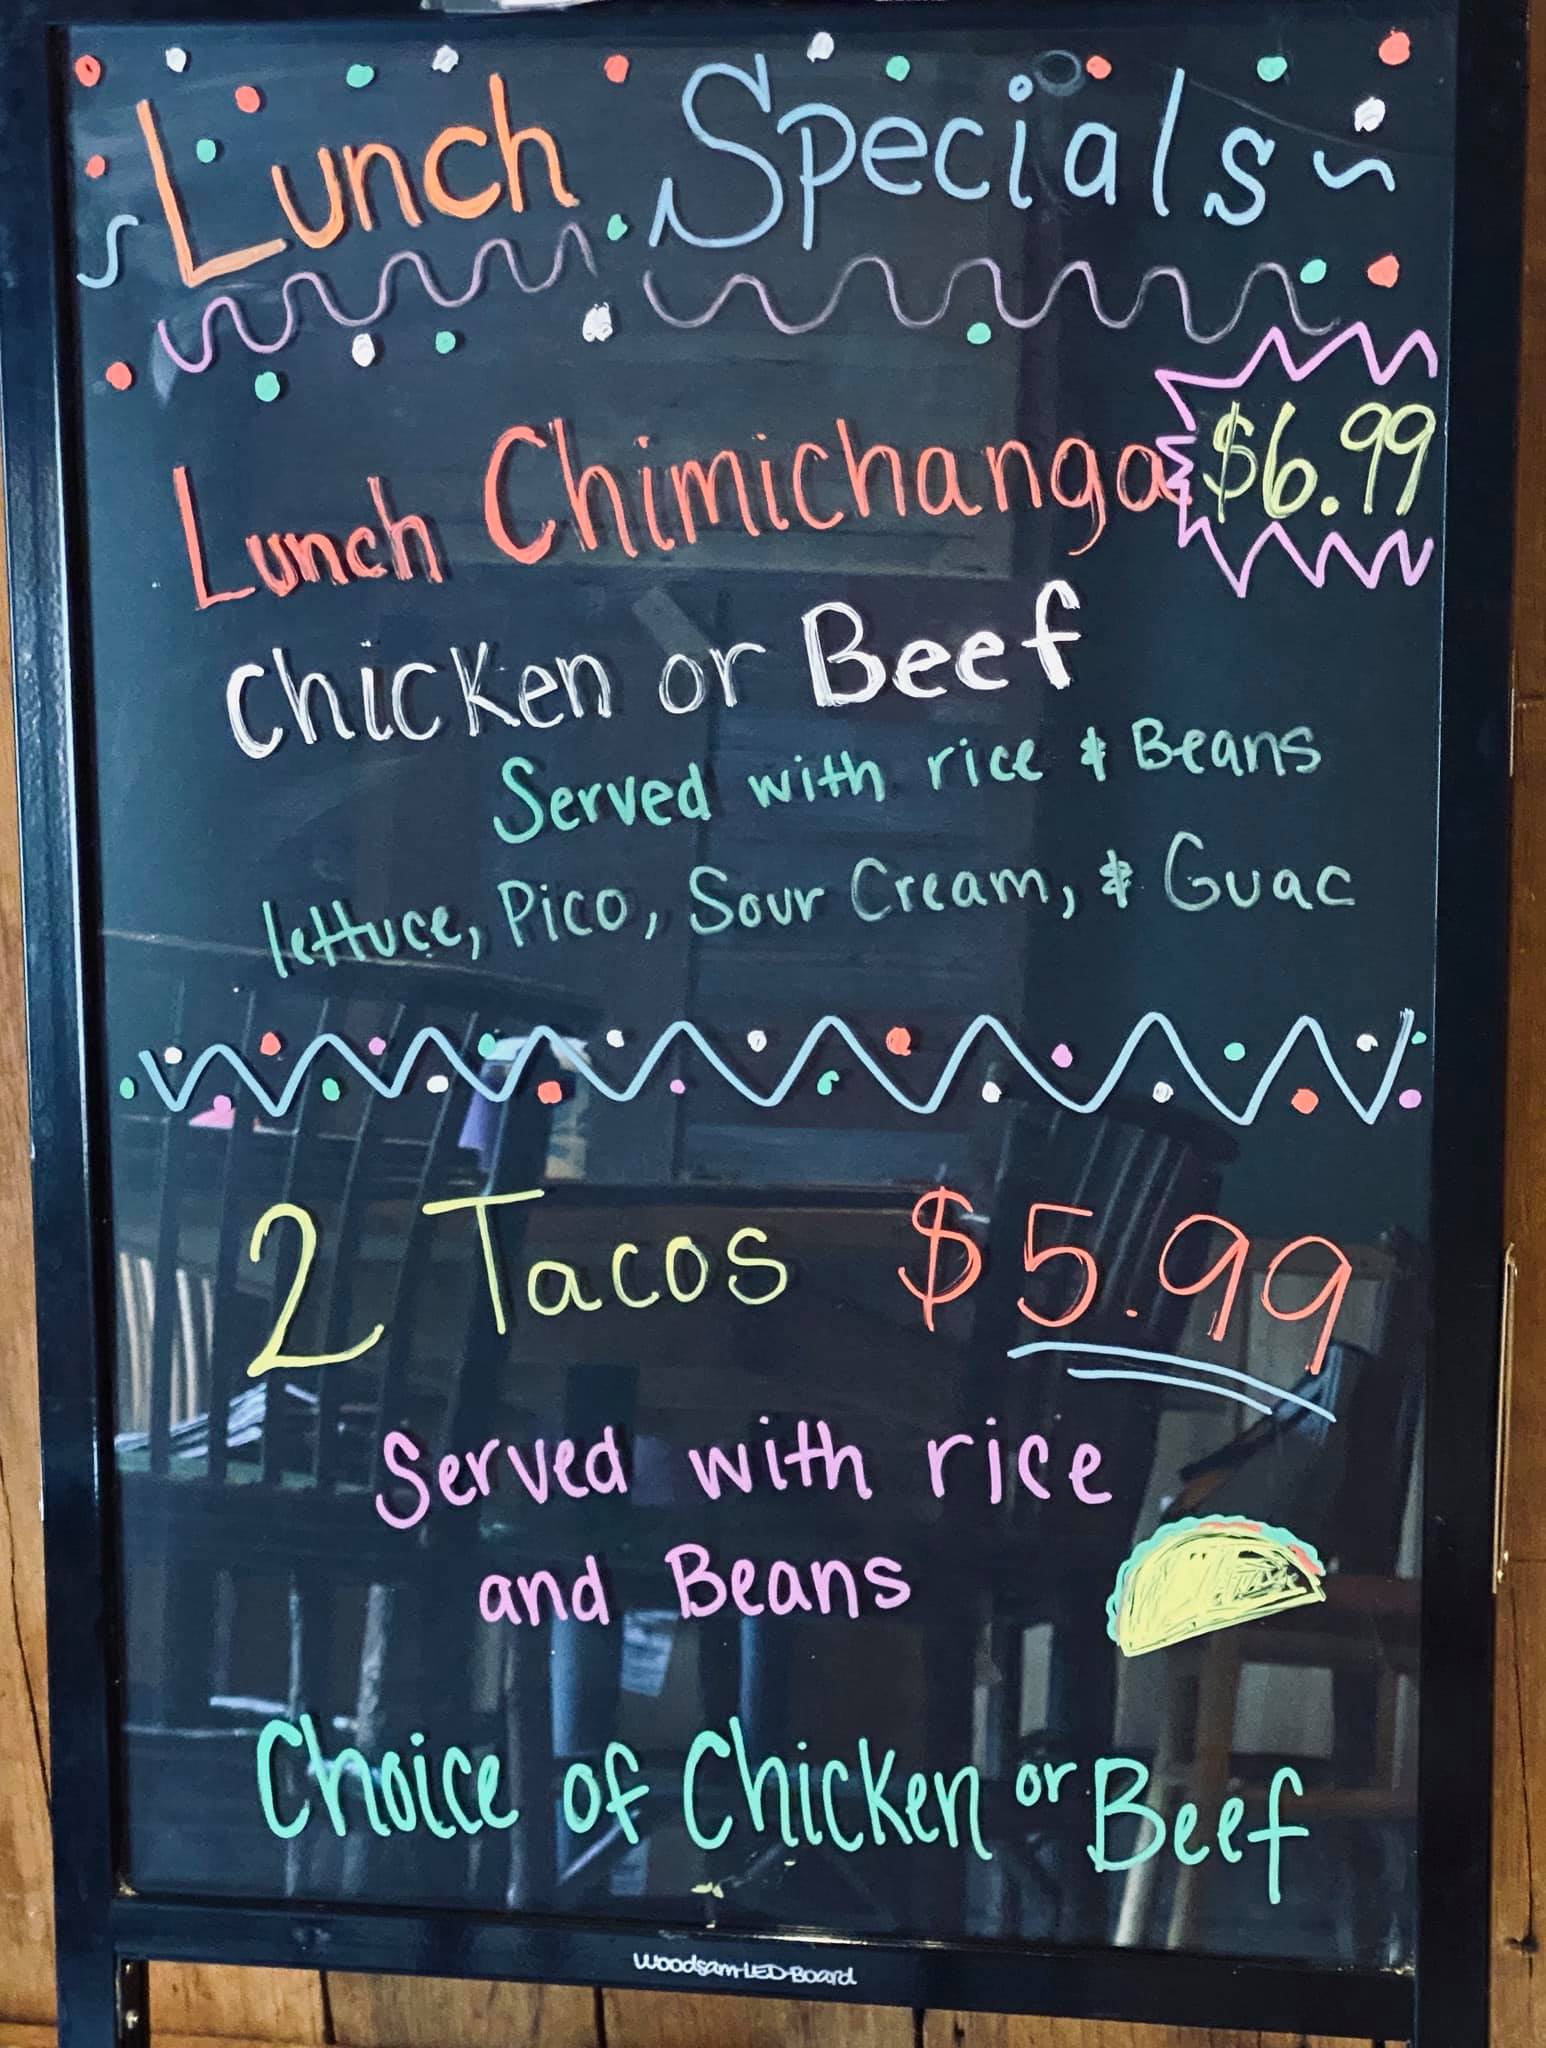 Lunch Specials
Lunch Chimichanga $6.99
Chicken or Beef
Served with rice & Beans
lettuce, Pico, Sour Cream, & Guac
2 Tacos $5.99
Served with rice
and Beans
Choice of Chicken or Beef
Woodsam-LED-Board